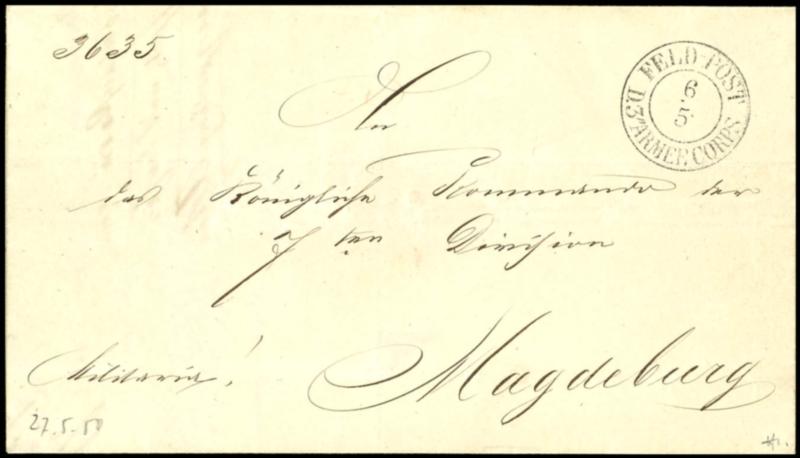 3635
FELD-POST
6
5.
D. 3. ARMEE CORPS
An
das Königliche Kommando der
7ten Division
Militaria!
Magdeburg
27.5.50